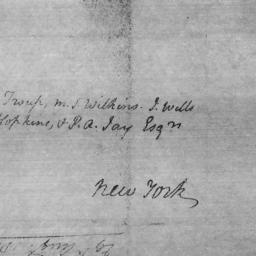 Troup, M. S Wilkins. J. Wells
Hopkins, & P. A. Jay Esqrs
New York